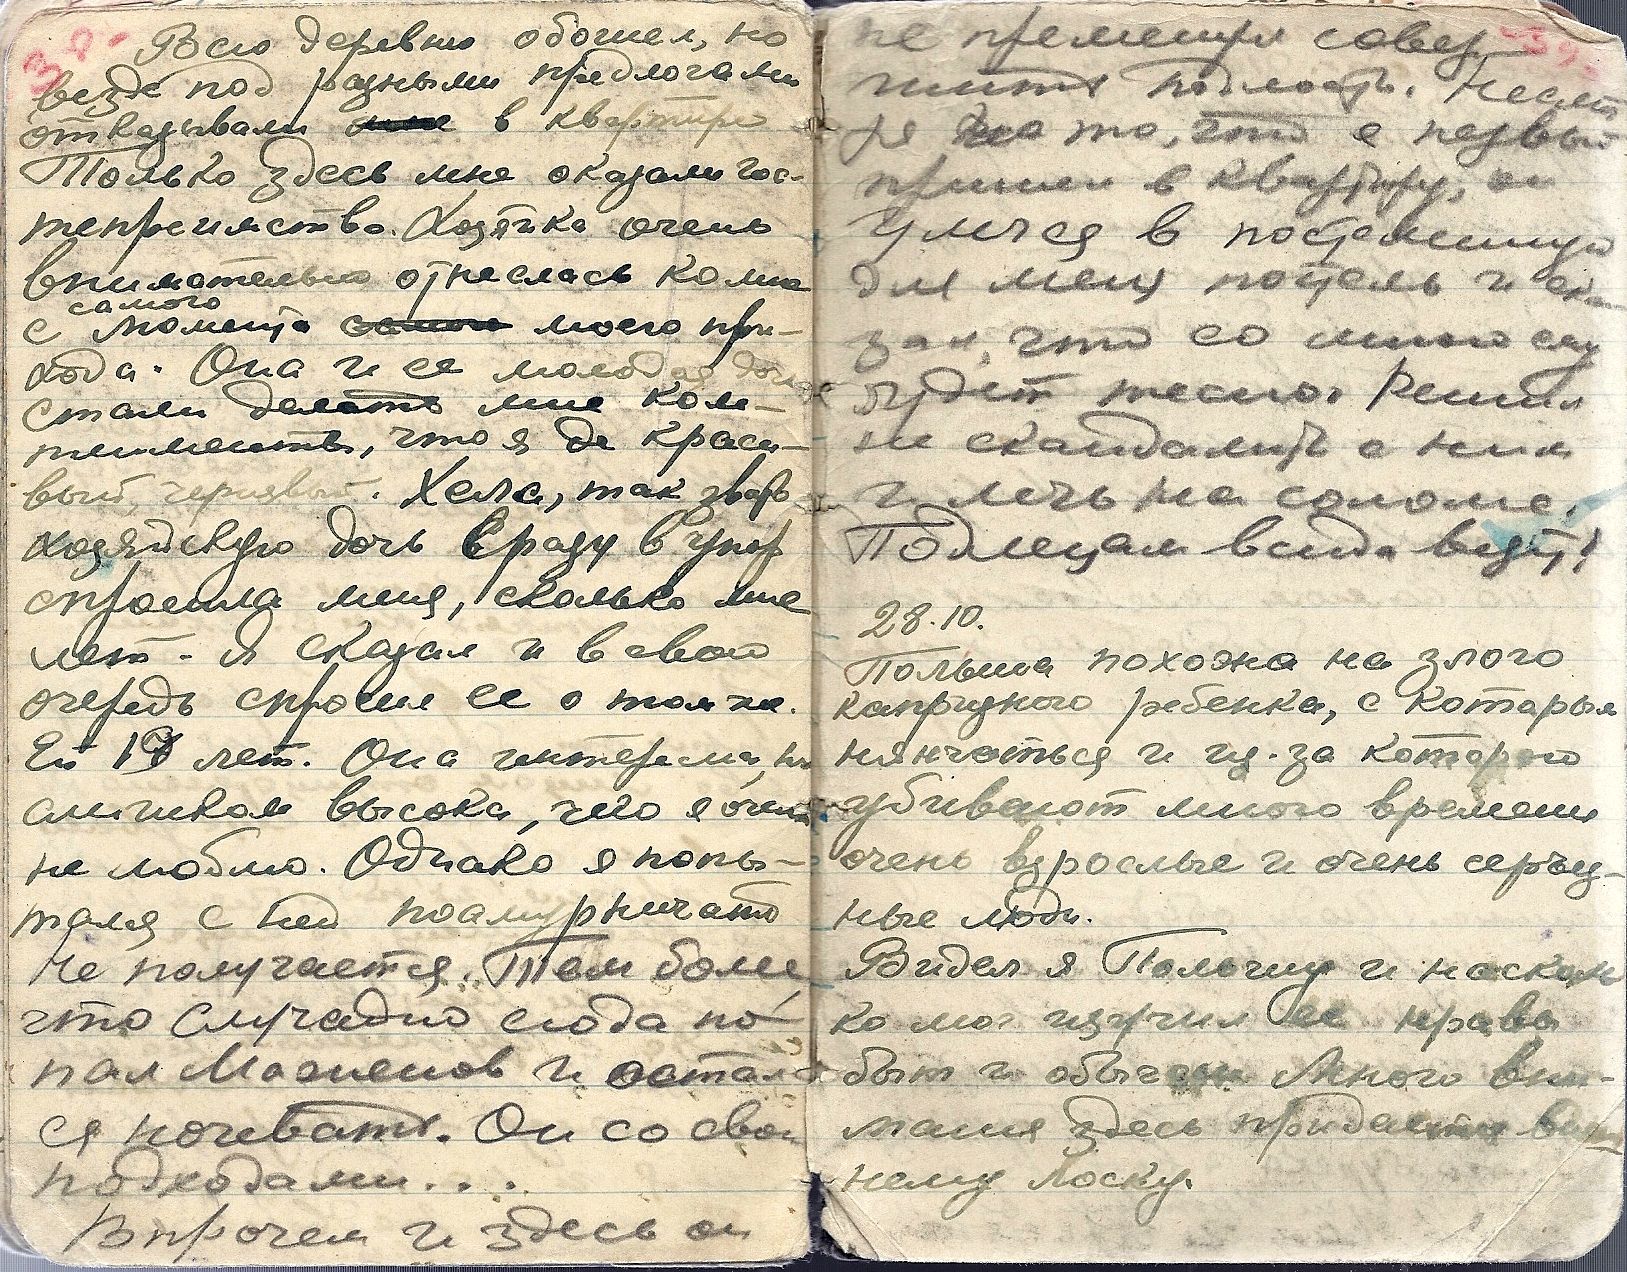 38.
Всю деревню обошел, но
везде под разными предлогами
отказывали в квартире
Только здесь мне оказали гос-
теприимство. Хозяйка очень
внимательно отнеслась ко мне
самого
с момента моего при-
хода. Она и ее молодая дочка
стали делать мне ком-
плименты, что я де краси-
вый, чернявый. Хела, так зовут
хозяйскую дочь сразу в упор
спросила меня, сколько мне
лет. Я сказал и в свою
очередь спросил ее о том же.
Ей 17 лет. Она интересна, но
слишком высока, чего я очень
не люблю. Однако я попы-
тался с ней поамурничать
Не получается. Тем более,
что случайно сюда по-
пал и остал
ся ночевать. Он со свои
подходами...
Впрочем и здесь он
39.
не преминул совер
шить подлость. Несмот
ря на то, что я первый
пришел в квартиру, он
улегся в постеленную
для меня постель и ска
зал, что со мною ему
будет тесно. Решил
не скандалить с ним
и лечь на соломе.
Подлецам всегда везет!
28.10.
Польша похожа на злого
капризного ребенка, с которым
нянчаться и из-за которого
убивают много времени
очень взрослые и очень серьез-
ные люди.
Видел я Польшу и насколь
ко мог изучил ее нравы
быт и обычаи Много вни-
мания здесь придается внеш
нему лоску.